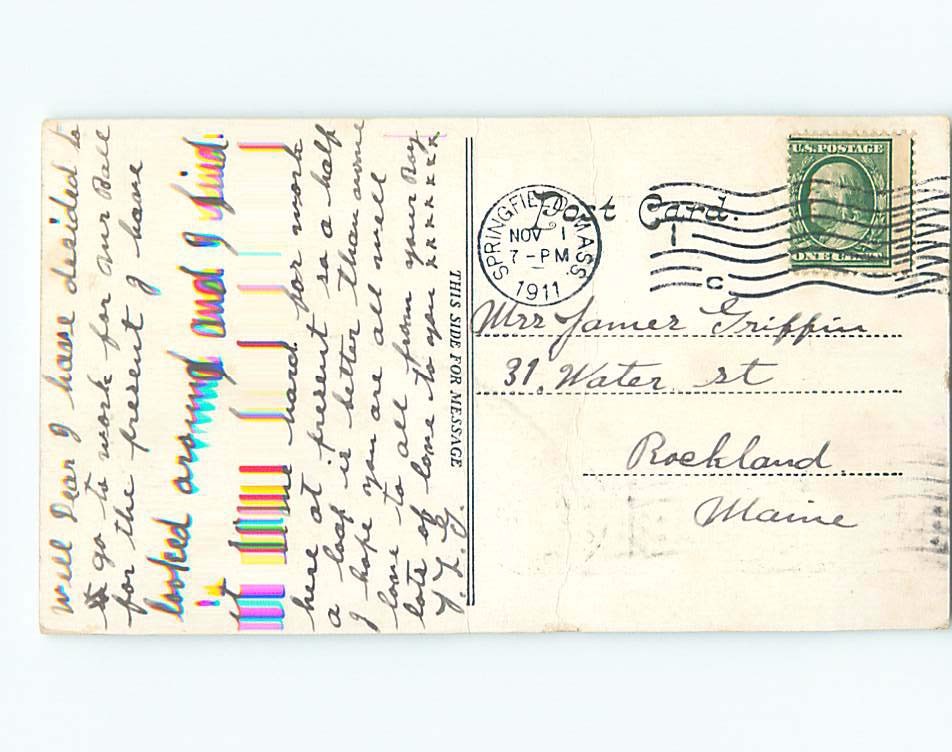 Well Dear I have desided to
go to work for Mr Ball
for the present I have
looked around and I find
it hard for work
here at present so a half
a loaf is better than none
I hope you are all well
love to all from your Roy
lots of love to you x x x x x x x
Y. L. H.
THIS SIDE FOR MESSAGE
Post Card.
SPRINGFIELD MASS
NOV 1
7-PM
1911
U.S. POSTAGE
ONE CENT
1
C
Mrs James Griffin
31. Water st
Rockland
Maine